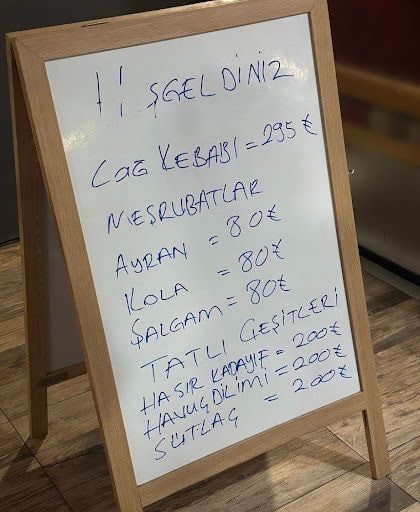 ŞGELDİNİZ
Cağ KEBABI = 295₺
MEŞRUBATLAR
AYRAN = 80₺
KOLA = 80₺
ŞALGAM = 80₺
TATLI ÇEŞİTLERİ
HASIR KADAYIF = 200₺
HAVUÇDİLİMİ = 200₺
SÜTLAÇ = 200₺